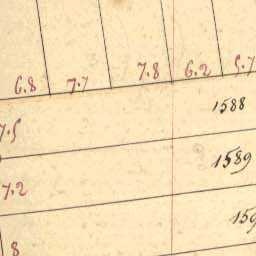 6.8 7.7 7.8 6.2 5.7
1588
7.5
1589
7.2
159
8